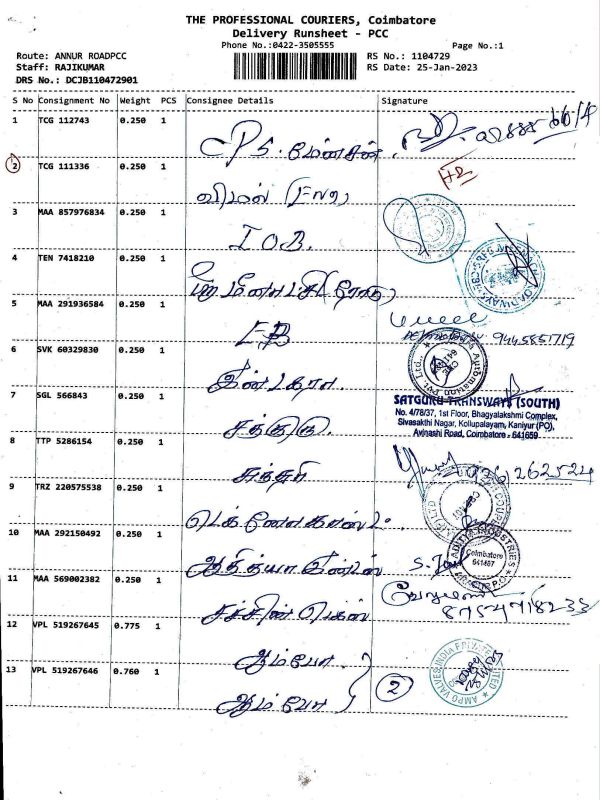 THE PROFESSIONAL COURIERS, Coimbatore
Delivery Runsheet - PCC
Phone No.:0422-3505555
Page No.:1
Route: ANNUR ROADPCC
RS No.: 1104729
Staff: RAJIKUMAR
RS Date: 25-Jan-2023
DRS No.: DCJB110472901
S No Consignment No Weight PCS Consignee Details Signature
1 TCG 112743 0.250 1
CPS.
2 TCG 111336 0.250 1
விமல்
3 MAA 857976834 0.250 1
I O B.
4 TEN 7418210 0.250 1
ஸ்ரீ மீனாட்சி ரோடு
5 MAA 291936584 0.250 1
EB
9445851719
6 SVK 60329830 0.250 1
7 SGL 566843 0.250 1
சத்குரு.
SATGURU TRANSWAYS (SOUTH)
No. 4/78/37, 1st Floor, Bhagyalakshmi Complex,
Sivasakthi Nagar, Kollupalayam, Kaniyur (PO),
Avinashi Road, Coimbatore - 641659
8 TTP 5286154 0.250 1
9 TRZ 220575538 0.250 1
10 MAA 292150492 0.250 1
ஆதித்யா
ADITYA INDUSTRIES
Coimbatore
641407
11 MAA 569002382 0.250 1
8754718233
12 VPL 519267645 0.775 1
ஆம்போ
13 VPL 519267646 0.760 1
ஆம்போ
2
AMPO VALVES INDIA PRIVATE LIMITED